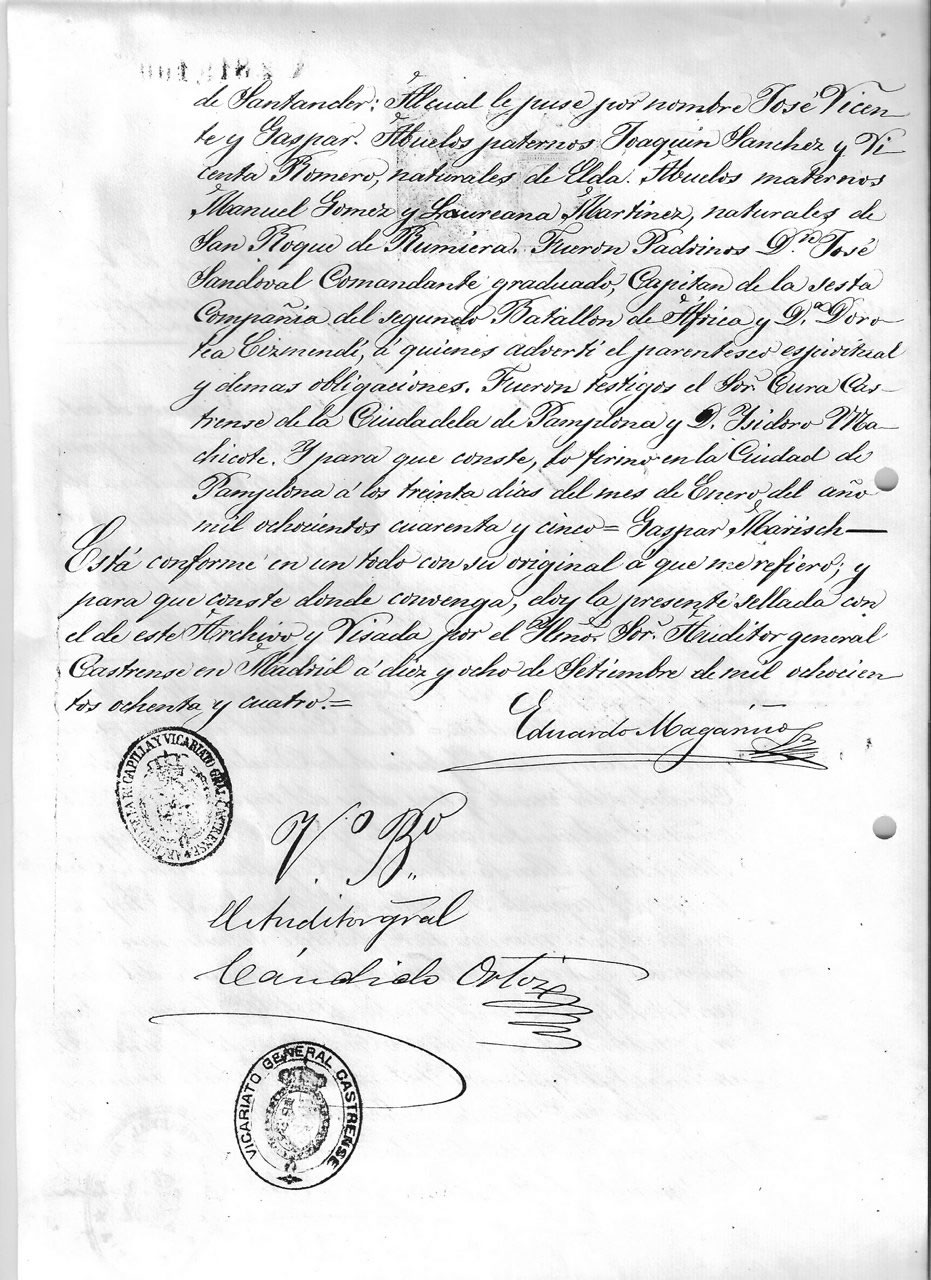 de Santander: Al cual le puse por nombre José Vicen
te y Gaspar. Abuelos paternos Joaquin Sanchez y Vi
centa Romero, naturales de Elda. Abuelos maternos
Manuel Gomez y Laureana Martinez, naturales de
San Roque de Rumiera. Fueron Padrinos D.n José
Sandoval Comandante graduado, Capitan de la sesta
Compañia del segundo Batallon de Africa y D.a Doro
tea Eizmendi, á quienes adverti el parentesco espiritual
y demas obligaciones. Fueron testigos el Sor. Cura Cas-
trense de la Ciudadela de Pamplona y D. Isidoro Ma-
chicote. Y para que conste, lo firmo en la Ciudad de
Pamplona á los treinta dias del mes de Enero del año
mil ochocientos cuarenta y cinco = Gaspar Marisch—
Está conforme en un todo con su original á que me refiero; y
para que conste donde convenga, doy la presente sellada con
el de este Archivo y Visada por el Sor. Auditor general
Castrense en Madrid á diez y ocho de Setiembre de mil ochocien
tos ochenta y cuatro.=
Eduardo Magarino
CAPILLA Y VICARIATO GRAL CASTRENSE
V.o B.o
El Auditor gral
Cándido Ortiz
VICARIATO GENERAL CASTRENSE